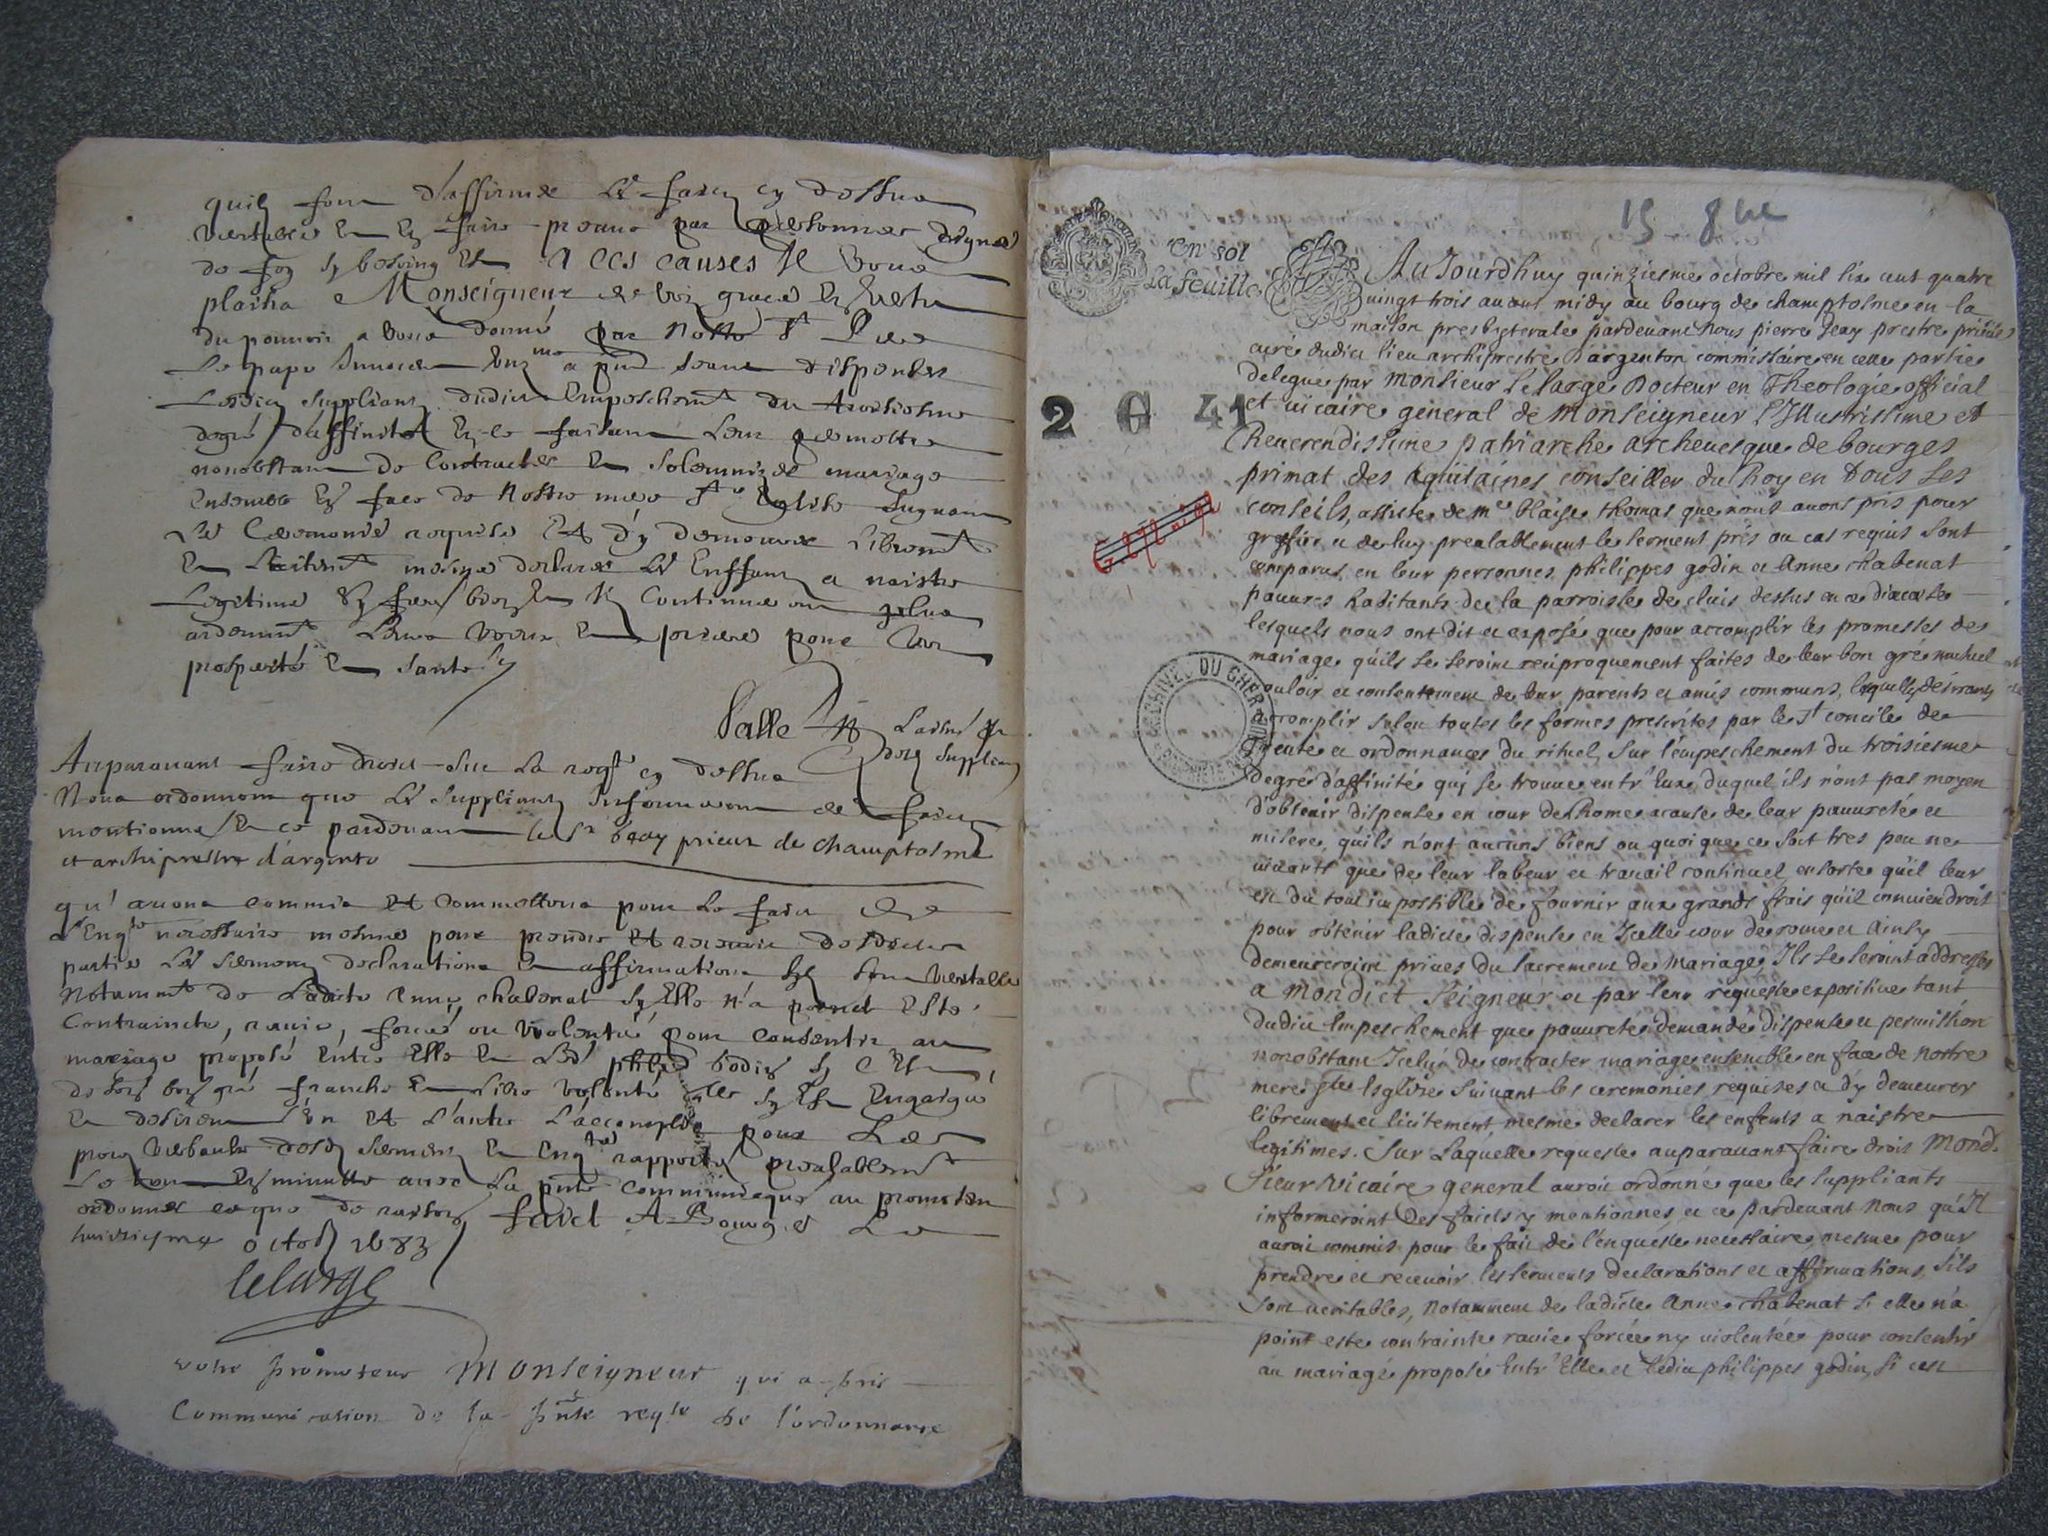 quilz sont d'affirmer les faictz cy dessus
veritables et en faire preuve par personnes dignes
de foy sy besoing est A CES CAUSES Il vous
plaira Monseigneur de voz graces en vertu
du pouvoir a vous donné par nostre St Pere
Le pape Innocent unzme a pnt seant dispenser
Lesdictz suppliantz dudict Empeschemt du troiziesme
degré d'affinité En ce faisant leur permettre
nonobstant de contracter et solemnizer mariage
ensemble En face de nostre mere Ste Eglise suyvant
les ceremonies requises Et d'y demeurer libremt
et licitemt mesme declarer les enffantz a naistre
Legitimes et continueront plus
ardemmt leurs voeux et prieres pour vre
prosperité et santé
Auparavant faire droict sur la reqte cy dessus
Nous ordonnons que les suppliantz Informeront des faictz
mentionnes et ce pardevant le sr prieur de champtosme
et archiprestre d'argento
qu'avons commis et commettons pour le faict de
l'Enqte necessaire mesme pour prendre et recevoir desdictes
parties les sermentz declarations et affirmations sy sont veritables
Notammt de ladicte Anne chabenat sy Elle n'a point esté
Contraincte, ravie, forcée ou violentée pour consentir au
mariage proposé entre Elle et ledt philippes godin sy c'est
de son bon gré franche et libre volonté quelle sy est Engaigée
et desirent l'un et l'autre l'accomplir pour Les
procz verbaulx desdz sermentz et Enqte rapportez prealablemt
Le tout En minutte avec La pnte communiqué au promoteur
ordonner ce que de raison faict A Bourges Le
huictiesme octob 1683
Lelarge
vostre promoteur Monseigneur qui a pris
Communication de la pnte reqte de l'ordonnance
15 8bre
en sol
La feuille
2 G 41
ARCHIVES DU CHER
AuJourdhuy quinziesme octobre mil six cent quatre
vingt trois avant midy au bourg de champtosme en la
maison presbyterale pardevant nous pierre Jeay prestre prieur
curé dudict lieu archiprestre d'argenton commissaire en cette partie
delegué par Monsieur Lelarge Docteur en Theologie official
et vicaire general de Monseigneur l'Illustrissime et
Reverendissime patriarche archevesque de bourges
primat des Aquitaines conseiller du Roy en tous ses
conseils, assisté de me blaise thomas que nous avons pris pour
greffier et de luy prealablement le serment pris au cas requis sont
comparus en leur personnes philippes godin et Anne chabenat
pauvres habitants de la parroisse de cluis dessus en ce diocese
lesquels nous ont dit et exposé que pour accomplir les promesses de
mariage qu'ils se seroint reciproquement faites de leur bon gré mutuel
vouloir et consentement de leur parents et amis communs, lesquelles désirants
accomplir selon toutes les formes prescrites par le St concile de
trente et ordonnances du rituel, sur l'empeschement du troisiesme
degré d'affinité qui se trouve entr'Eux duquel ils n'ont pas moyen
d'obtenir dispense en cour de Rome a cause de leur pauvreté et
misere, qu'ils n'ont aucuns biens ou quoique ce soit tres peu ne
vivants que de leur labeur et travail continuel en sorte qu'il leur
est du tout impossible de fournir aux grands frais qu'il conviendroit
pour obtenir ladicte dispense en Icelle cour de rome et Ainsy
demeureroint privés du sacrement de Mariage, Ils se seroint addresses
a Mondict Seigneur et par leur requeste expositive tant
dudict Empeschement que pauvreté demandé dispense et permission
nonobstant Icelui de contracter mariage ensemble en face de nostre
mere Ste Esglise suivant les ceremonies requises et d'y demeurer
librement et licitement, mesme declarer les enfents a naistre
legitimes. Sur Laquelle requeste auparavant faire droit Mond.
Sieur Vicaire general auroit ordonné que les suppliants
informeroint des faicts y mentionnes, et ce pardevant Nous qu'Il
auroit commis pour le fait de l'enqueste necessaire, mesme pour
prendre et recevoir les serments declarations et affirmations, S'ils
sont veritables, notamment de ladicte Anne chabenat si elle n'a
point esté contrainte ravie forcée ny violentée pour consentir
au mariage proposé Entr'Elle et ledict philippes godin, si cest